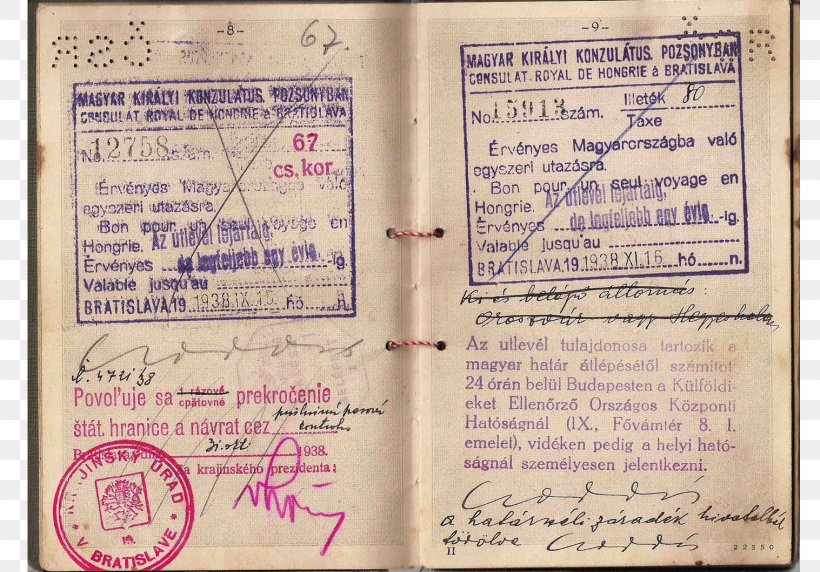 -8-
67
MAGYAR KIRÁLYI KONZULÁTUS. POZSONYBAN
CONSULAT ROYAL DE HONGRIE à BRATISLAVA
No 12758 szám.
67
cs. kor.
Érvényes Magyarországba való
egyszeri utazásra.
Bon pour un seul voyage en
Hongrie. Az útlevél lejártáig,
Érvényes de legfeljebb egy évig -ig
Valable jusqu'au
BRATISLAVA 19 1938.IX.15 hó n.
Č. 4721/38
Povoľuje sa 1 rázové prekročenie
zpätovné
štát. hranice a návrat cez
31.okt. 1938.
Za krajinského prezidenta:
KRAJINSKÝ ÚRAD
V BRATISLAVE
-9-
MAGYAR KIRÁLYI KONZULÁTUS. POZSONYBAN
CONSULAT ROYAL DE HONGRIE à BRATISLAVA
No 15913 szám. Illeték 80
Taxe
Érvényes Magyarországba való
egyszeri utazásra.
Bon pour un seul voyage en
Hongrie. Az útlevél lejártáig,
Érvényes de legfeljebb egy évig -ig.
Valable jusqu'au
BRATISLAVA, 19 1938 XI.16 hó n.
Ki és belépő állomás:
Oroszvár vagy Hegyeshalom
Az útlevél tulajdonosa tartozik a
magyar határ átlépésétől számított
24 órán belül Budapesten a Külföldi-
eket Ellenőrző Országos Központi
Hatóságnál (IX., Fővámtér 8. I.
emelet), vidéken pedig a helyi ható-
ságnál személyesen jelentkezni.
a határnéli záradék hivatalból
törölve
II
22550